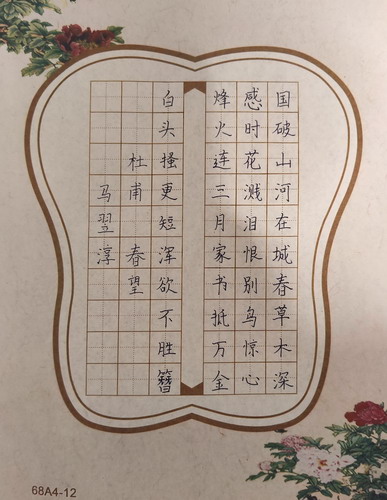 国破山河在城春草木深
感时花溅泪恨别鸟惊心
烽火连三月家书抵万金
白头搔更短浑欲不胜簪
杜甫春望
马翌淳
68A4-12